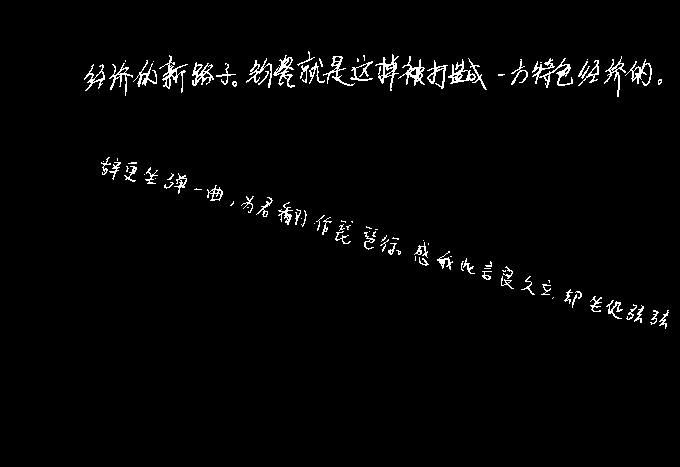 经济的新路子。钓鱟就是这样被打造成一方特色经济的。
辞更坐弹一曲，为君翻作琵琶行。感我此言良久立，却坐促弦弦